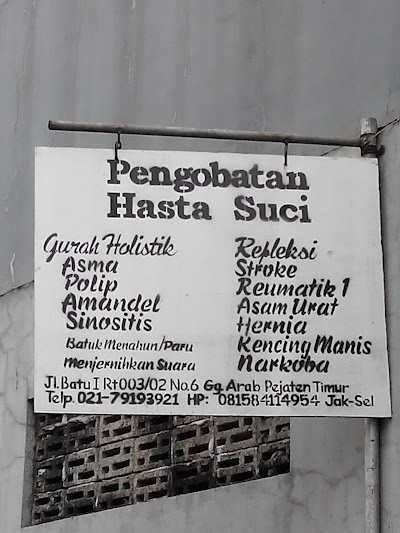 Pengobatan
Hasta Suci
Gurah Holistik
Asma
Polip
Amandel
Sinositis
Batuk Menahun/Paru
Menjernihkan Suara
Repleksi
Stroke
Reumatik 1
Asam Urat
Hernia
Kencing Manis
Narkoba
Jl. Batu I Rt003/02 No.6 Gg. Arab Pejaten Timur
Telp. 021-79193921 HP: 081584114954 Jak-Sel